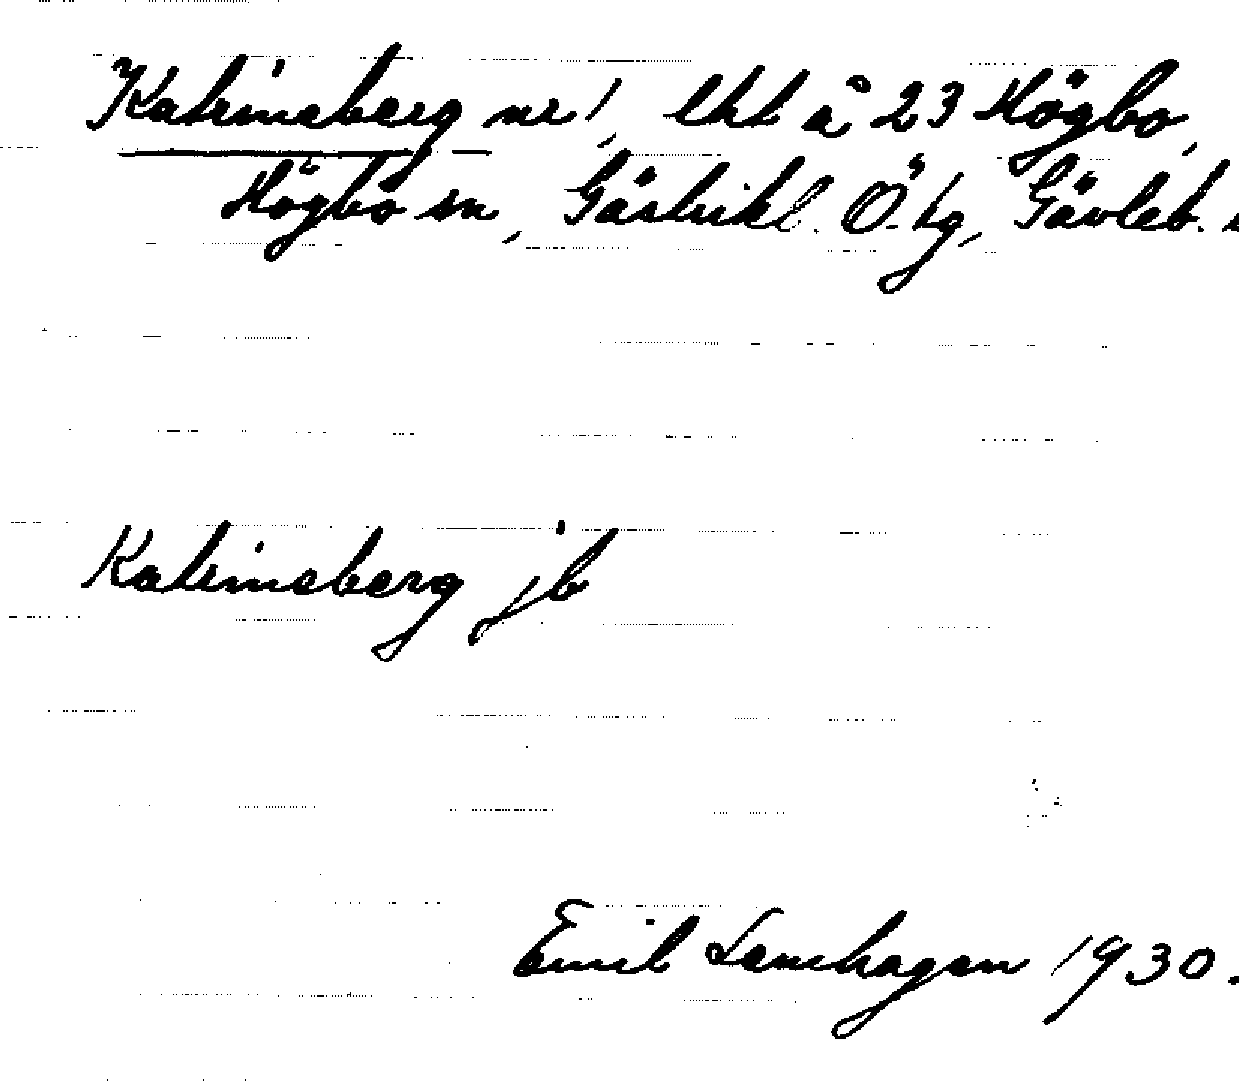 Katrineberg nr 1, lht å 23 Högbo,
Högbo sn, Gästrikl. Ö. tg, Gävleb. l
Katrineberg jb
Emil Lamhagen 1930.